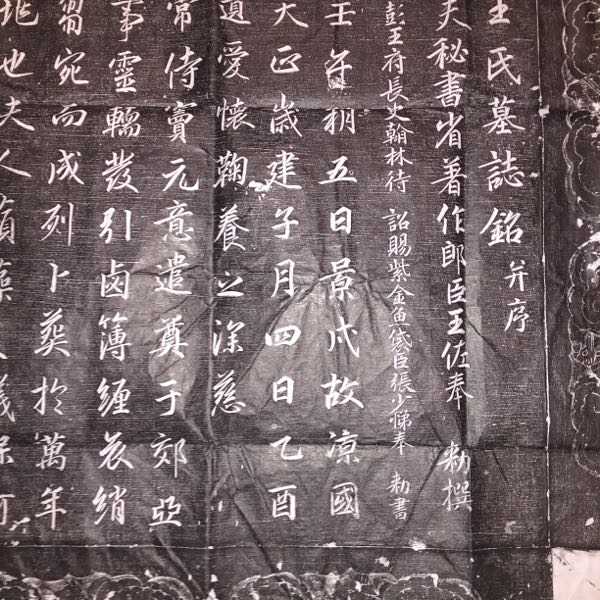 王氏墓誌銘并序
夫秘書省著作郎臣王佐奉 勅撰
彭王府長史翰林待 詔賜紫金魚袋臣張少悌奉 勅書
壬午朔五日景戌故涼國
大正歲建子月四日乙酉
道愛懷鞠養之深慈
常侍竇元意遣奠于郊亞
事靈轜發引鹵簿纏哀綃
習宛而成列卜葬於萬年
地也夫人蘋藻